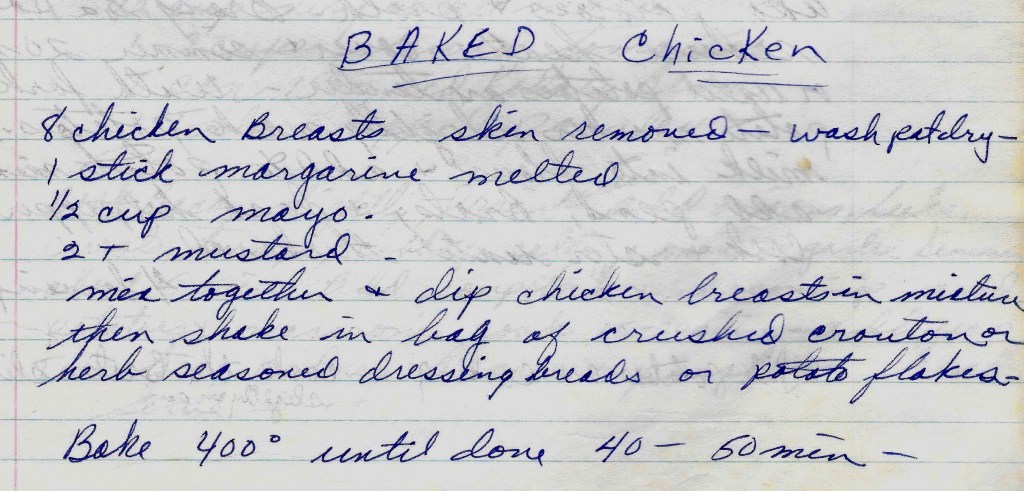 BAKED Chicken
8 chicken Breasts skin removed – wash pat dry –
1 stick margarine melted
1/2 cup mayo.
2 T mustard –
mix together & dip chicken breasts in mixture
then shake in bag of crushed crouton or
herb seasoned dressing breads or potato flakes –
Bake 400° until done 40 – 50 min –